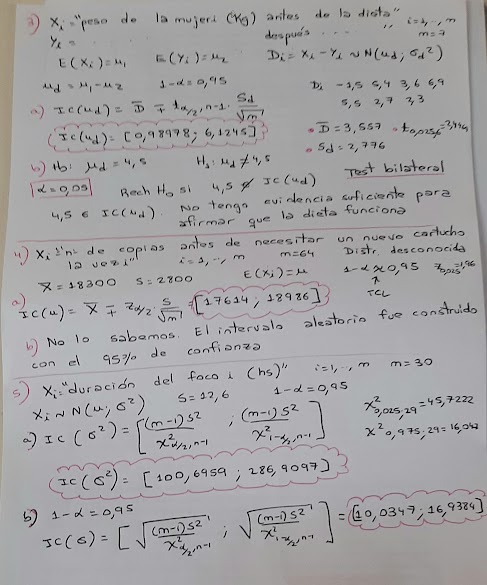 3) Xi = "peso de la mujer i (kg) antes de la dieta" i=1,..,m
Yi = " después " m=7
E(Xi) = μ1 E(Yi) = μ2 Di = Xi - Yi ~ N(μd, σd²)
μd = μ1 - μ2 1-α = 0,95 Di -1,5 5,4 3,6 6,9
5,5 2,7 2,3
a) IC(μd) = D̄ ∓ tα/2, n-1 . Sd/√m
• D̄ = 3,557 • t0,025,6
• Sd = 2,776
IC(μd) = [0,98978; 6,1245]
b) H0: μd = 4,5 H1: μd ≠ 4,5 Test bilateral
α = 0,05 Rech H0 si 4,5 ∉ IC(μd)
4,5 ∈ IC(μd). No tengo evidencia suficiente para
afirmar que la dieta funciona
4) Xi: "nº de copias antes de necesitar un nuevo cartucho
la vez i" i=1,..,m m=64 Distr. desconocida
X̄ = 18300 S = 2800 E(Xi) = μ 1-α ≈ 0,95 z0,025 = 1,96
TCL
a) IC(μ) = X̄ ∓ zα/2 . S/√m = [17614; 18986]
b) No lo sabemos. El intervalo aleatorio fue construido
con el 95% de confianza
5) Xi = "duración del foco i (hs)" i=1,..,m m=30
Xi ~ N(μ; σ²) S = 12,6 1-α = 0,95
a) IC(σ²) = [(m-1)S²/χ²α/2,n-1 ; (m-1)S²/χ²1-α/2,n-1]
χ²0,025,29 = 45,7222
χ²0,975,29 = 16,047
IC(σ²) = [100,6959; 286,9097]
b) 1-α = 0,95
IC(σ) = [√((m-1)S²/χ²α/2,n-1) ; √((m-1)S²/χ²1-α/2,n-1)] = [10,0347; 16,9384]